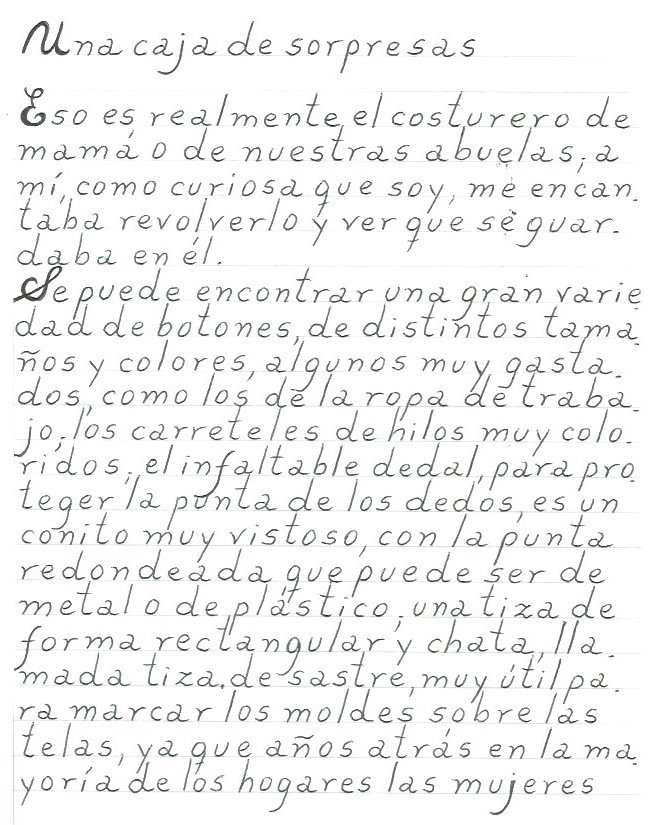 Una caja de sorpresas
Eso es realmente el costurero de
mamá o de nuestras abuelas; a
mí, como curiosa que soy, me encan-
taba revolverlo y ver que se guar-
daba en él.
Se puede encontrar una gran varie
dad de botones, de distintos tama-
ños y colores, algunos muy gasta-
dos, como los de la ropa de traba-
jo; los carreteles de hilos muy colo-
ridos; el infaltable dedal, para pro-
teger la punta de los dedos, es un
conito muy vistoso, con la punta
redondeada que puede ser de
metal o de plástico; una tiza de
forma rectangular y chata, lla-
mada tiza de sastre, muy útil pa-
ra marcar los moldes sobre las
telas, ya que años atrás en la ma-
yoría de los hogares las mujeres